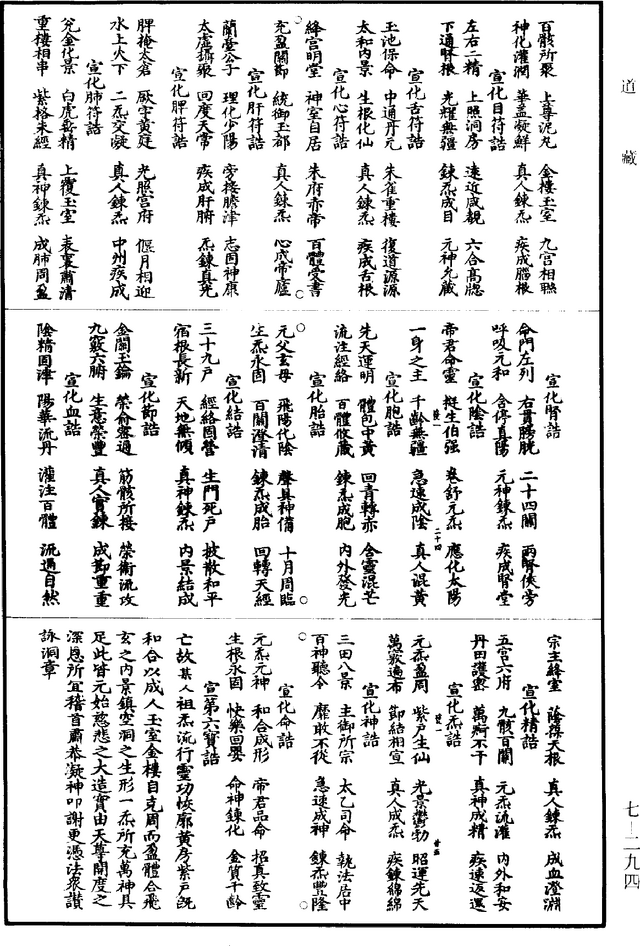 道藏
百骸所聚　上尊泥丸　金樓玉室　九宮相聯
神化灌潤　華蓋凝鮮　真人鍊炁　疾成腦根
宣化目符誥
左右二精　上照洞房　遠近咸覩　六合高牕
下通腎根　光耀無疆　鍊炁成目　元神允藏
宣化舌符誥
玉池保命　中通丹元　朱雀重樓　復道源源
太和內景　生根化仙　真人鍊炁　疾成舌根
宣化心符誥
絳宮明堂　神室自居　朱府亦帝　百體受書
充盈關節　統御玉都　真人鍊炁　心成帝廬
宣化肝符誥
蘭臺公子　理化少陽　旁接膽津　志固神康
太虛攝聚　回度天常　疾成肝腑　炁鍊真光
宣化脾符誥
脾掩太倉　厥字黃庭　光照宮府　偃月相迎
水上火下　二炁交凝　真人鍊炁　中州疾成
宣化肺符誥
兌金化景　白虎嶽精　上覆玉室　表裏肅清
重樓相串　紫格朱經　真神鍊炁　成肺周盈
宣化腎誥
命門左列　右貫膀胱　二十四關　兩腎俠旁
呼吸元和　含停真陽　元神鍊炁　疾成腎堂
宣化陰誥
帝君命靈　挺生伯强　卷舒元炁　應化太陽
一身之主　千齡無疆　急速成陰　真人混黃
宣化胞誥
先天運明　體包中黃　回青轉赤　含靈混芒
流注經絡　百體攸藏　鍊炁成胞　內外發光
宣化胎誥
元父玄母　飛陽代陰　聲具神備　十月周臨
生炁永固　百關澄清　鍊炁成胎　回轉天經
宣化結誥
三十九戶　經絡固營　生門死戶　披散和平
宿根長新　天地無傾　真神鍊炁　內景結成
宣化節誥
金關玉鑰　榮衛密通　筋骸所接　榮衛流攻
九竅六腑　生意榮豐　真人實鍊　成節重重
宣化血誥
陰精固津　陽華流丹　灌注百體　流通自然
宗主絳室　蔭葆天根　真人鍊炁　成血澄淵
宣化精誥
五宮六府　九骸百關　元炁流灌　內外和安
丹田護禦　萬痾不干　真神成精　疾速返還
宣化炁誥
元炁盈周　紫戶生仙　光景鬱勃　昭運先天
萬竅遍布　節結相宣　真人成炁　疾鍊綿綿
宣化神誥
三田八景　主御所宗　太乙司命　執法居中
百神聽令　靡敢不從　急速成神　鍊炁豐隆
宣化命誥
元炁元神　和合成形　帝君品命　招真致靈
生根永固　快樂回嬰　命神鍊化　金質千齡
宣第六寶誥
亡故某人祖炁流行靈功恢廓黃房紫戶既
和合以成人玉室金樓自克周而盈體合飛
玄之內景鎮空洞之生形一炁所充萬神具
足此皆元始慈悲之大造實由天尊開度之
深恩所宜稽首肅恭凝神叩謝更憑法衆讚
詠洞章
七－二九四